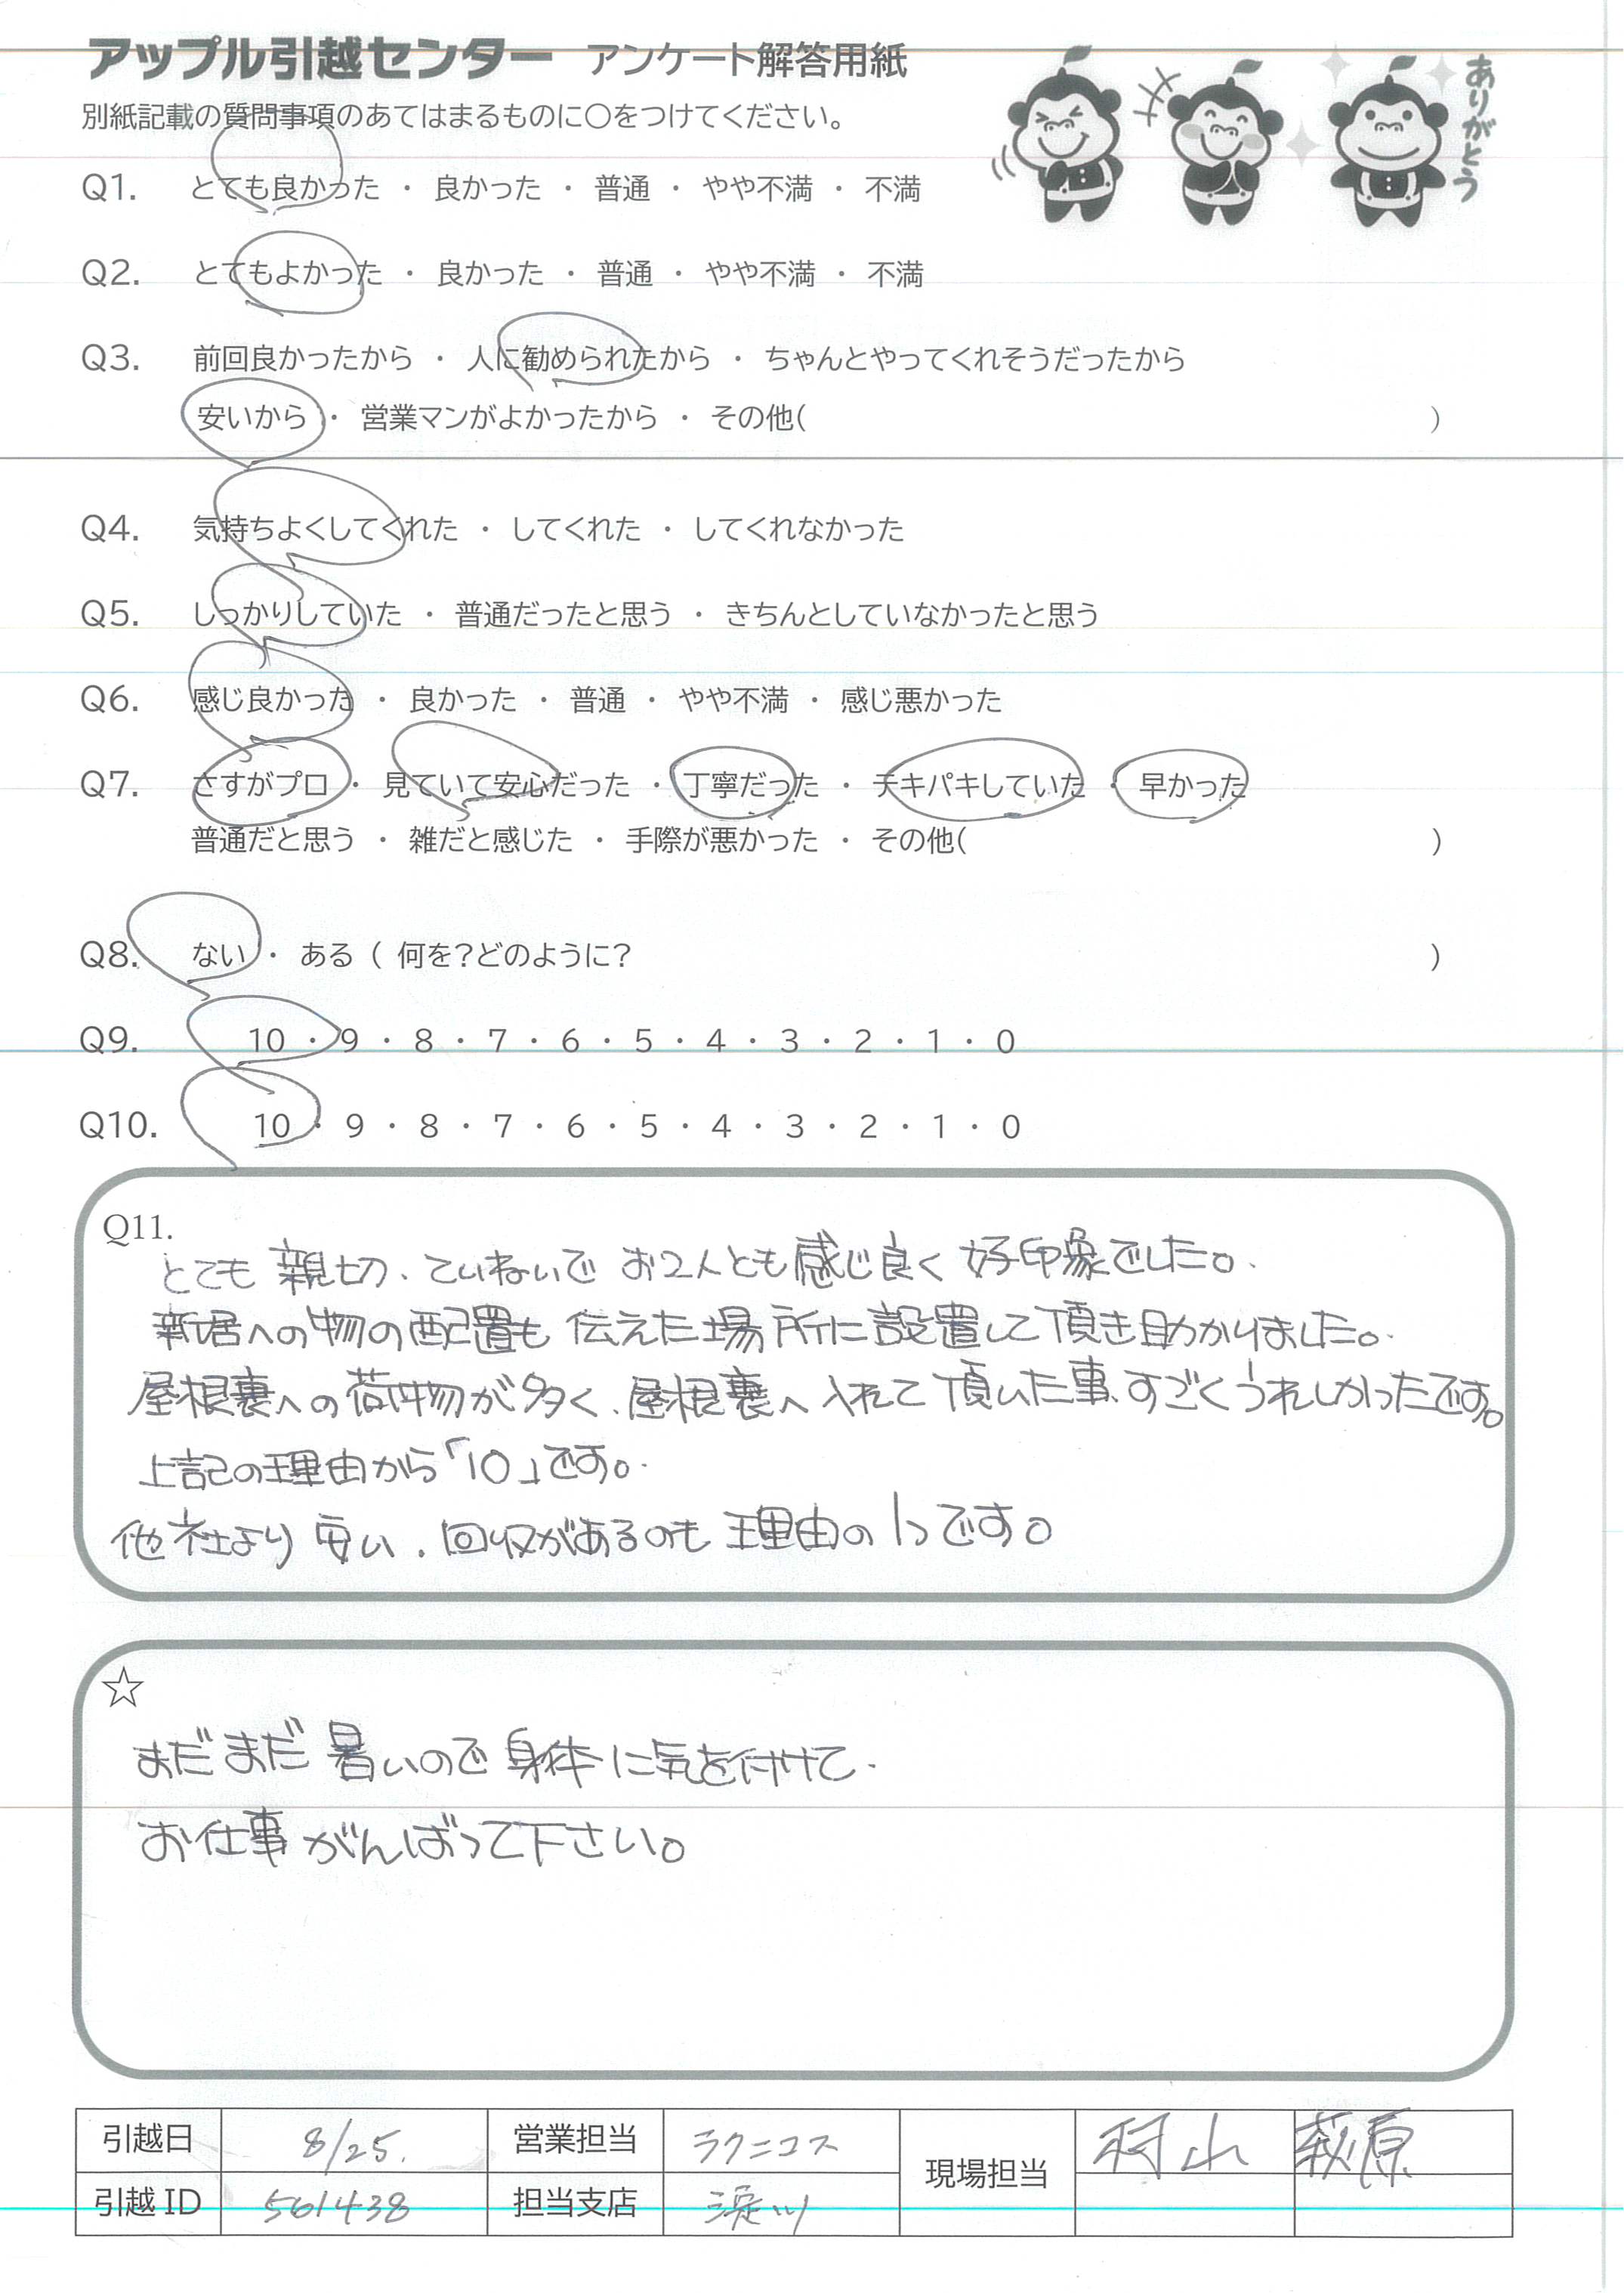 アップル引越センター アンケート解答用紙
別紙記載の質問事項のあてはまるものに〇をつけてください。
ありがとう
Q1. とても良かった ・ 良かった ・ 普通 ・ やや不満 ・ 不満
Q2. とてもよかった ・ 良かった ・ 普通 ・ やや不満 ・ 不満
Q3. 前回良かったから ・ 人に勧められたから ・ ちゃんとやってくれそうだったから
安いから ・ 営業マンがよかったから ・ その他( )
Q4. 気持ちよくしてくれた ・ してくれた ・ してくれなかった
Q5. しっかりしていた ・ 普通だったと思う ・ きちんとしていなかったと思う
Q6. 感じ良かった ・ 良かった ・ 普通 ・ やや不満 ・ 感じ悪かった
Q7. さすがプロ ・ 見ていて安心だった ・ 丁寧だった ・ テキパキしていた ・ 早かった
普通だと思う ・ 雑だと感じた ・ 手際が悪かった ・ その他( )
Q8. ない ・ ある ( 何を?どのように? )
Q9. 10 ・ 9 ・ 8 ・ 7 ・ 6 ・ 5 ・ 4 ・ 3 ・ 2 ・ 1 ・ 0
Q10. 10 ・ 9 ・ 8 ・ 7 ・ 6 ・ 5 ・ 4 ・ 3 ・ 2 ・ 1 ・ 0
Q11.
とても 親切、ていねいで お2人とも感じ良く 好印象でした。
新居への物の配置も 伝えた場所に設置して頂き助かりました。
屋根裏への荷物が多く、屋根裏へ入れて頂いた事、すごくうれしかったです。
上記の理由から「10」です。
他社より 安い、回収があるのも 理由の1つです。
☆
まだまだ 暑いので 身体に気を付けて
お仕事がんばって下さい。
引越日 8/25. 営業担当 ラクニコス 現場担当 村山 萩原
引越ID 561438 担当支店 淀川